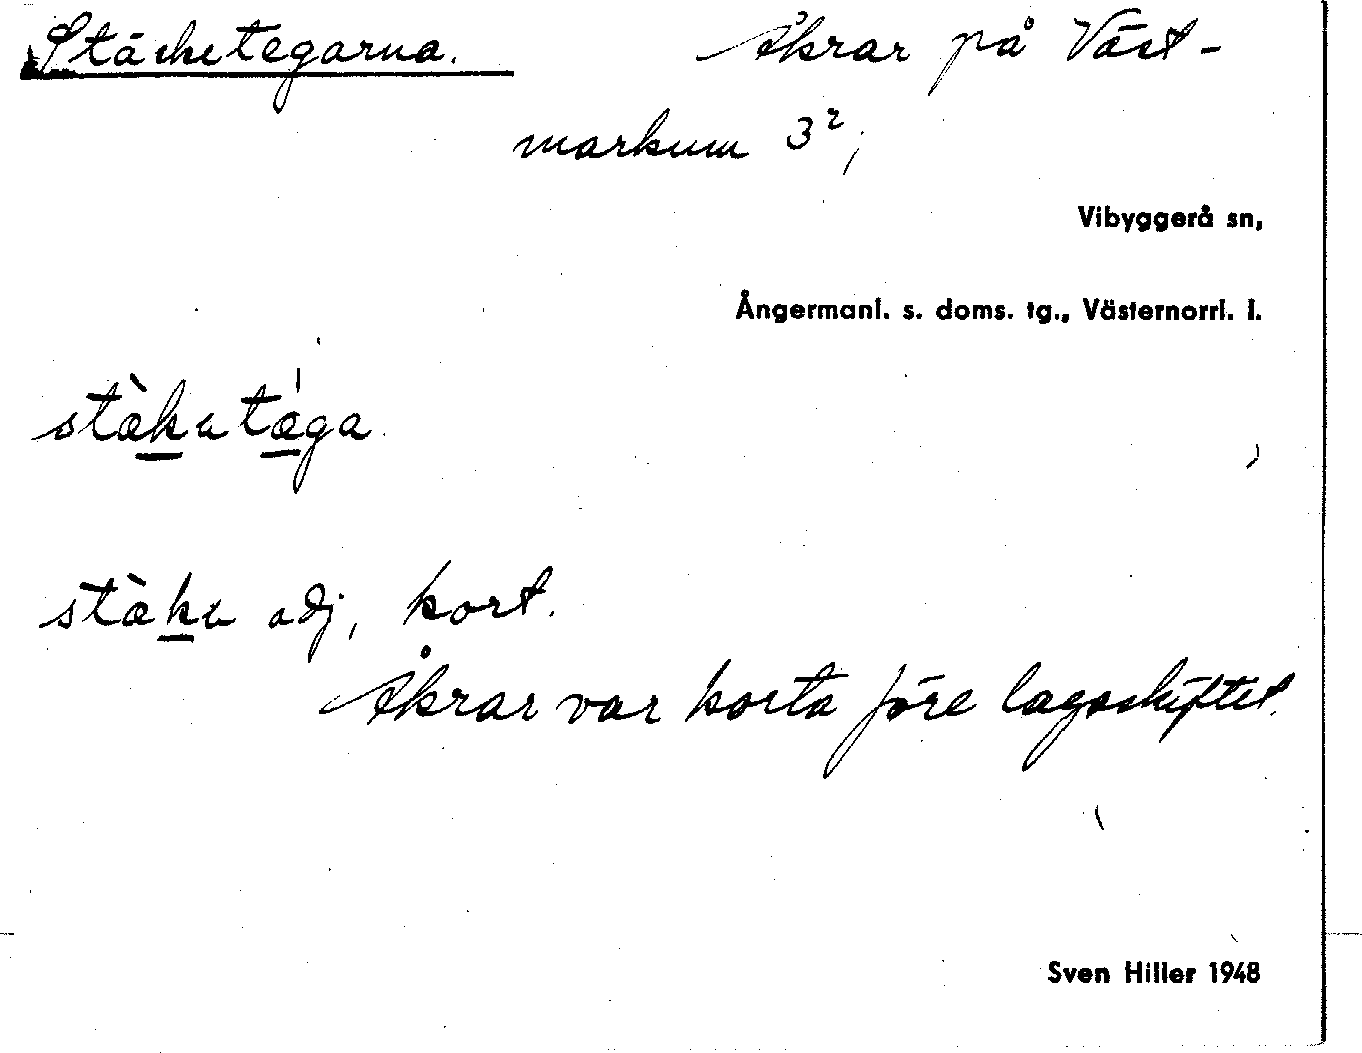 Stäcketegarna. Åkrar på Väst-
markum 3²,
Vibyggerå sn,
Ångermanl. s. doms. tg., Västernorrl. l.
stæ̀kutæ̀ga
stæ̀ku adj, kort.
Åkrar var korta före lagaskiftet.
Sven Hiller 1948